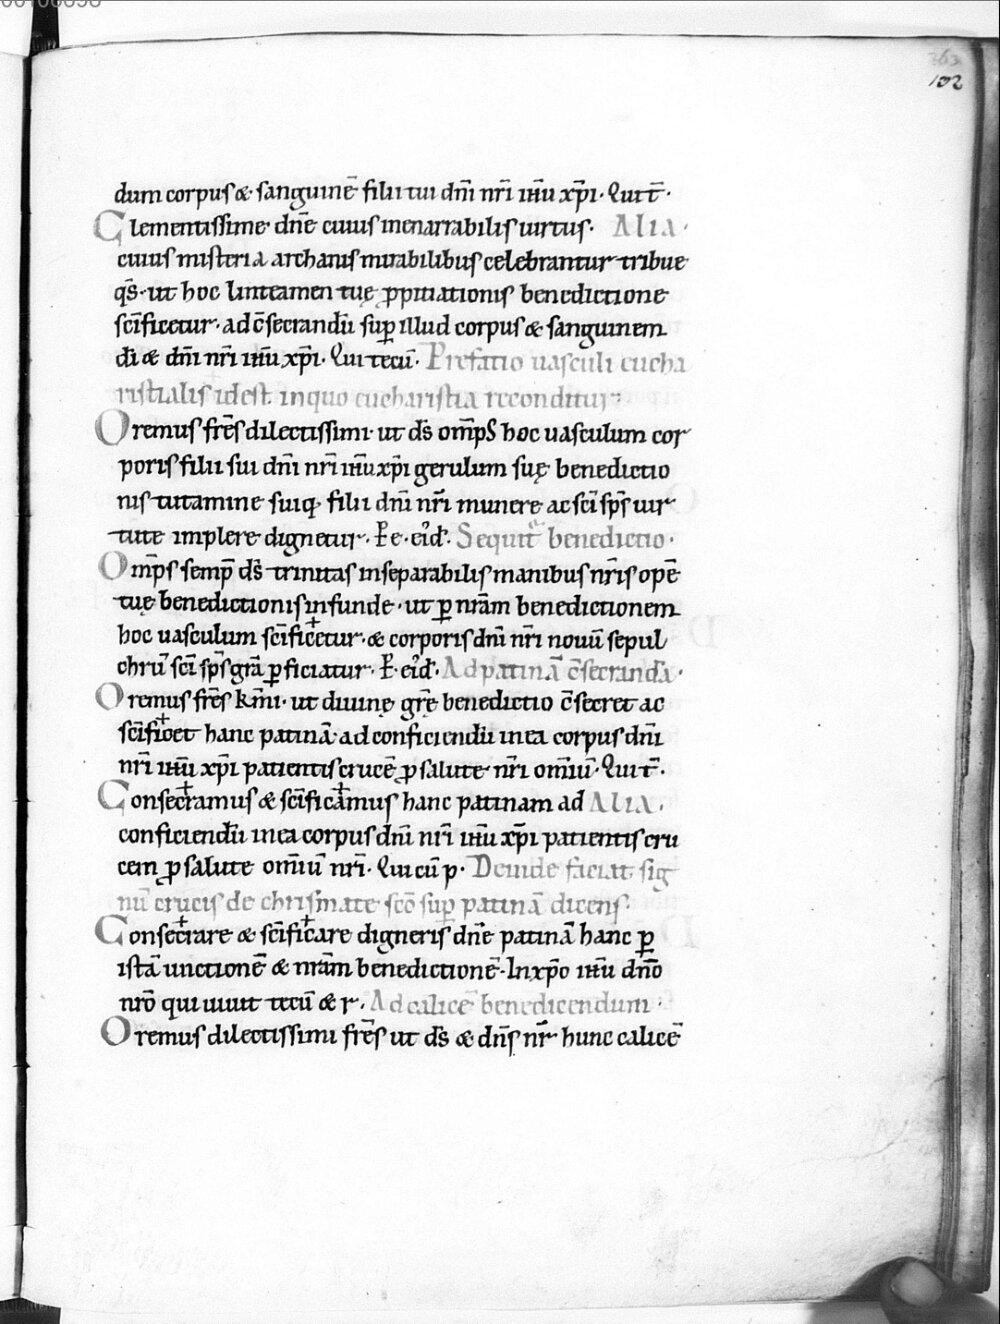 363
102
dum corpus & sanguinē filii tui dn̄i nr̄i ih̄u xp̄i · Qui t̄ ·
Clementissime dn̄e cuius inenarrabilis uirtus · Alia ·
cuius misteria archanis mirabilibus celebrantur tribue
qs̄ · ut hoc linteamen tuę ꝓpitiationis benedictione
sc̄ificetur · ad c̄secrandū suꝑ illud corpus & sanguinem
dī & dn̄i nr̄i ih̄u xp̄i · Qui tecū · Prefatio uasculi eucha
ristialis idest in quo eucharistia reconditur ·
Oremus fr̄es dilectissimi ut ds̄ omp̄s hoc uasculum cor
poris filii sui dn̄i nr̄i ih̄u xp̄i gerulum suę benedictio
nis tutamine suiq; filii dn̄i nr̄i munere ac sc̄i sp̄s uir
tute implere dignetur · P̄ e · eid̄ · Sequit̄ benedictio ·
Omp̄s semp̄ ds̄ trinitas inseparabilis manibus nr̄is opē
tuę benedictionis infunde · ut ꝑ nr̄am benedictionem
hoc uasculum sc̄ific+etur · & corporis dn̄i nr̄i nouū sepul
chrū sc̄i sp̄s gr̄a ꝑficiatur · P̄ · eid̄ · Ad patinā c̄secrandā ·
Oremus fr̄es km̄i · ut diuinę gr̄ę benedictio c̄secret ac
sc̄ifi+cet hanc patinā · ad conficiendū in ea corpus dn̄i
nr̄i ih̄u xp̄i patientis crucē ꝓ salute nr̄i omīū · Qui t̄ ·
Consec+ramus & sc̄ific+amus hanc patinam ad Alia ·
conficiendū in ea corpus dn̄i nr̄i ih̄u xp̄i patientis cru
cem ꝓ salute omīū nr̄i · Qui cū p · Deinde faciat sig
nū crucis de chrismate sc̄o suꝑ patinā dicens ·
Consec+rare & sc̄ific+are digneris dn̄e patinā hanc ꝑ
istā unctionē & nr̄am benedictionē · In xp̄o ih̄u dn̄o
nr̄o qui uiuit tecū & r · Ad calicē benedicendum ·
Oremus dilectissimi fr̄es ut ds̄ & dn̄s nr̄ hunc calicē